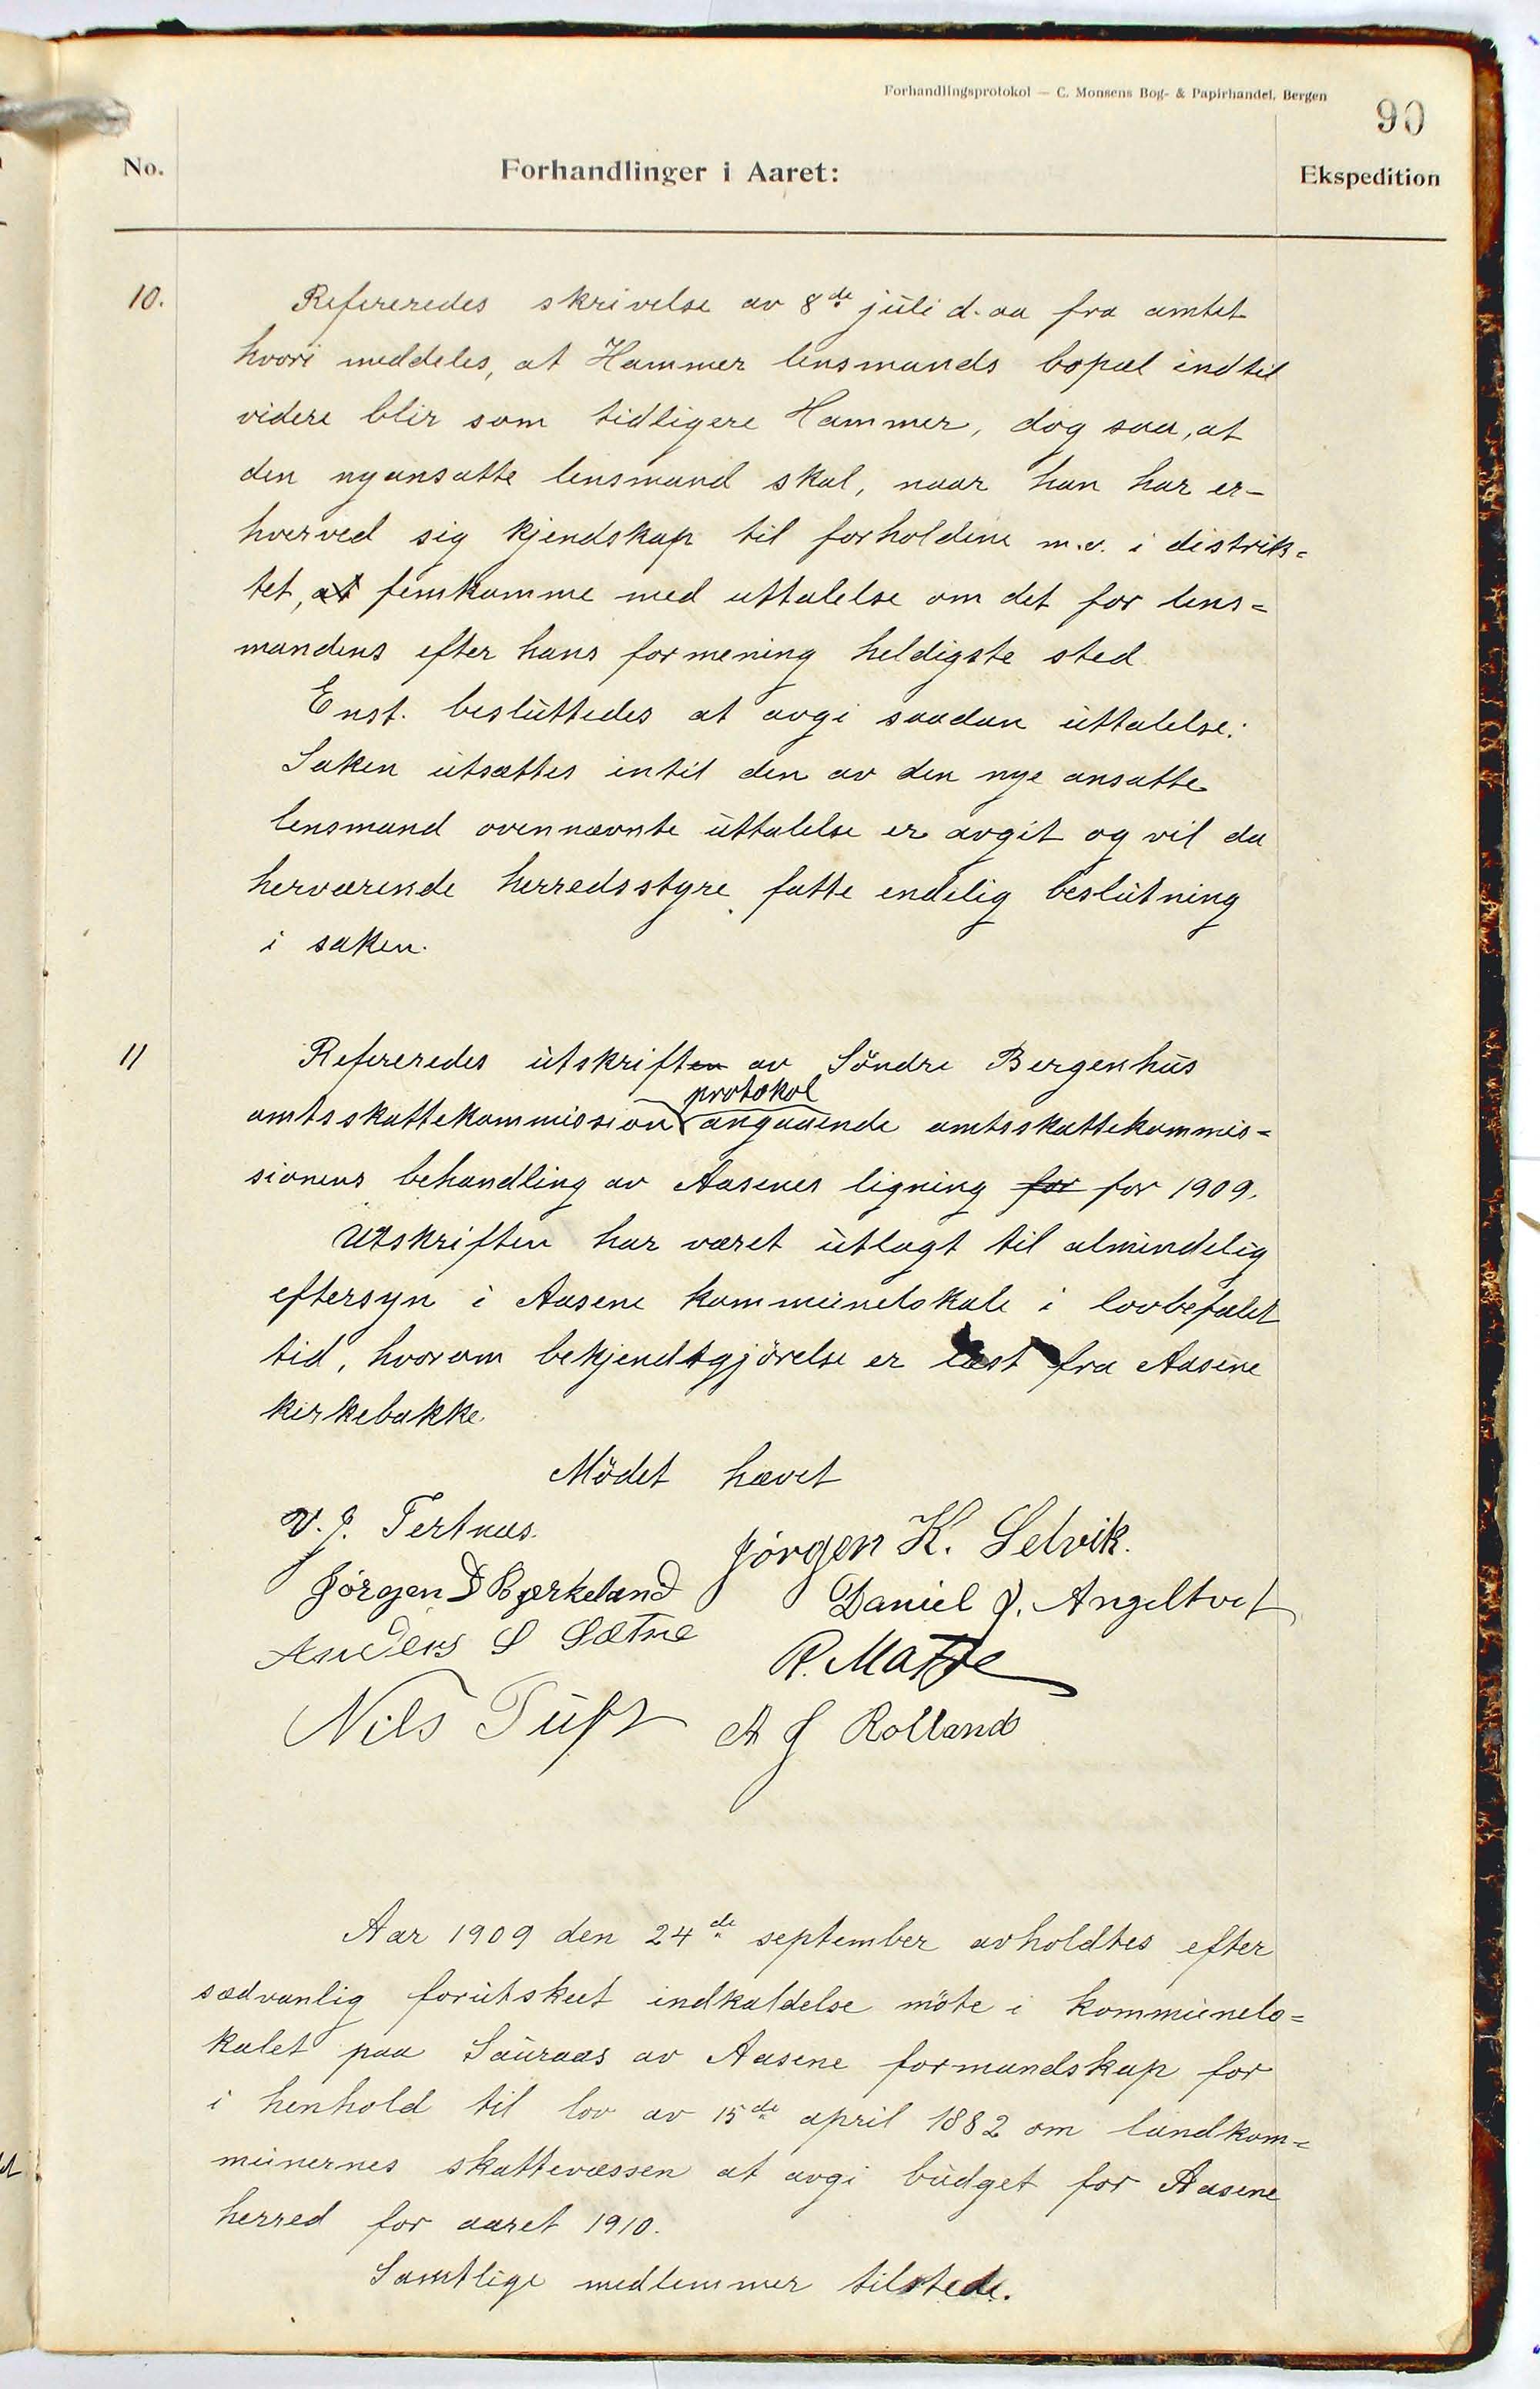 Forhandlingsprotokol — C. Monsens Bog- & Papirhandel, Bergen
90
No.
Forhandlinger i Aaret:
Ekspedition
10.
Refereredes skrivelse av 8de juli d. aa fra amtet
hvori meddeles, at Hammer lensmands bopæl indtil
videre blir som tidligere Hammer, dog saa, at
den nyansatte lensmand skal, naar han har er-
hverved sig kjendskap til forholdene m.v. i distrik=
tet, at femkomme med uttalelse om det for lens=
mandens efter hans formening heldigste sted
Enst. besluttedes at avgi saadan uttalelse:
Saken utsættes intil den av den nye ansatte
lensmand ovennævnte uttalelse er avgit og vil da
herværende herredsstyre fatte endelig beslutning
i saken.
11
Refereredes utskriften av Söndre Bergenhus
protokol
amtsskattekommission angaaende amtsskattekommis=
sionens behandling av Aasenes ligning for for 1909.
Utskriften har været utlagt til almindelig
eftersyn i Aasene kommunelokale i lovbefalet
tid, hvorom bekjendtgjörelse er læst fra Aasene
kirkebakke
Mödet hævet
V. J. Tertnæs.
Jörgen K. Selvik.
Jörgen D Bjerkeland
Daniel J. Angeltvet
Anders S Sætre
R. Matre
Nils Tuft
A J Rolland
Aar 1909 den 24de september avholdtes efter
sædvanlig forutskeet indkaldelse möte i kommunelo=
kalet paa Sauraas av Aasene formandskap for
i henhold til lov av 15de april 1882 om landkom=
munernes skattevæssen at avgi budget for Aasene
herred for aaret 1910.
Samtlige medlemmer tilstede.